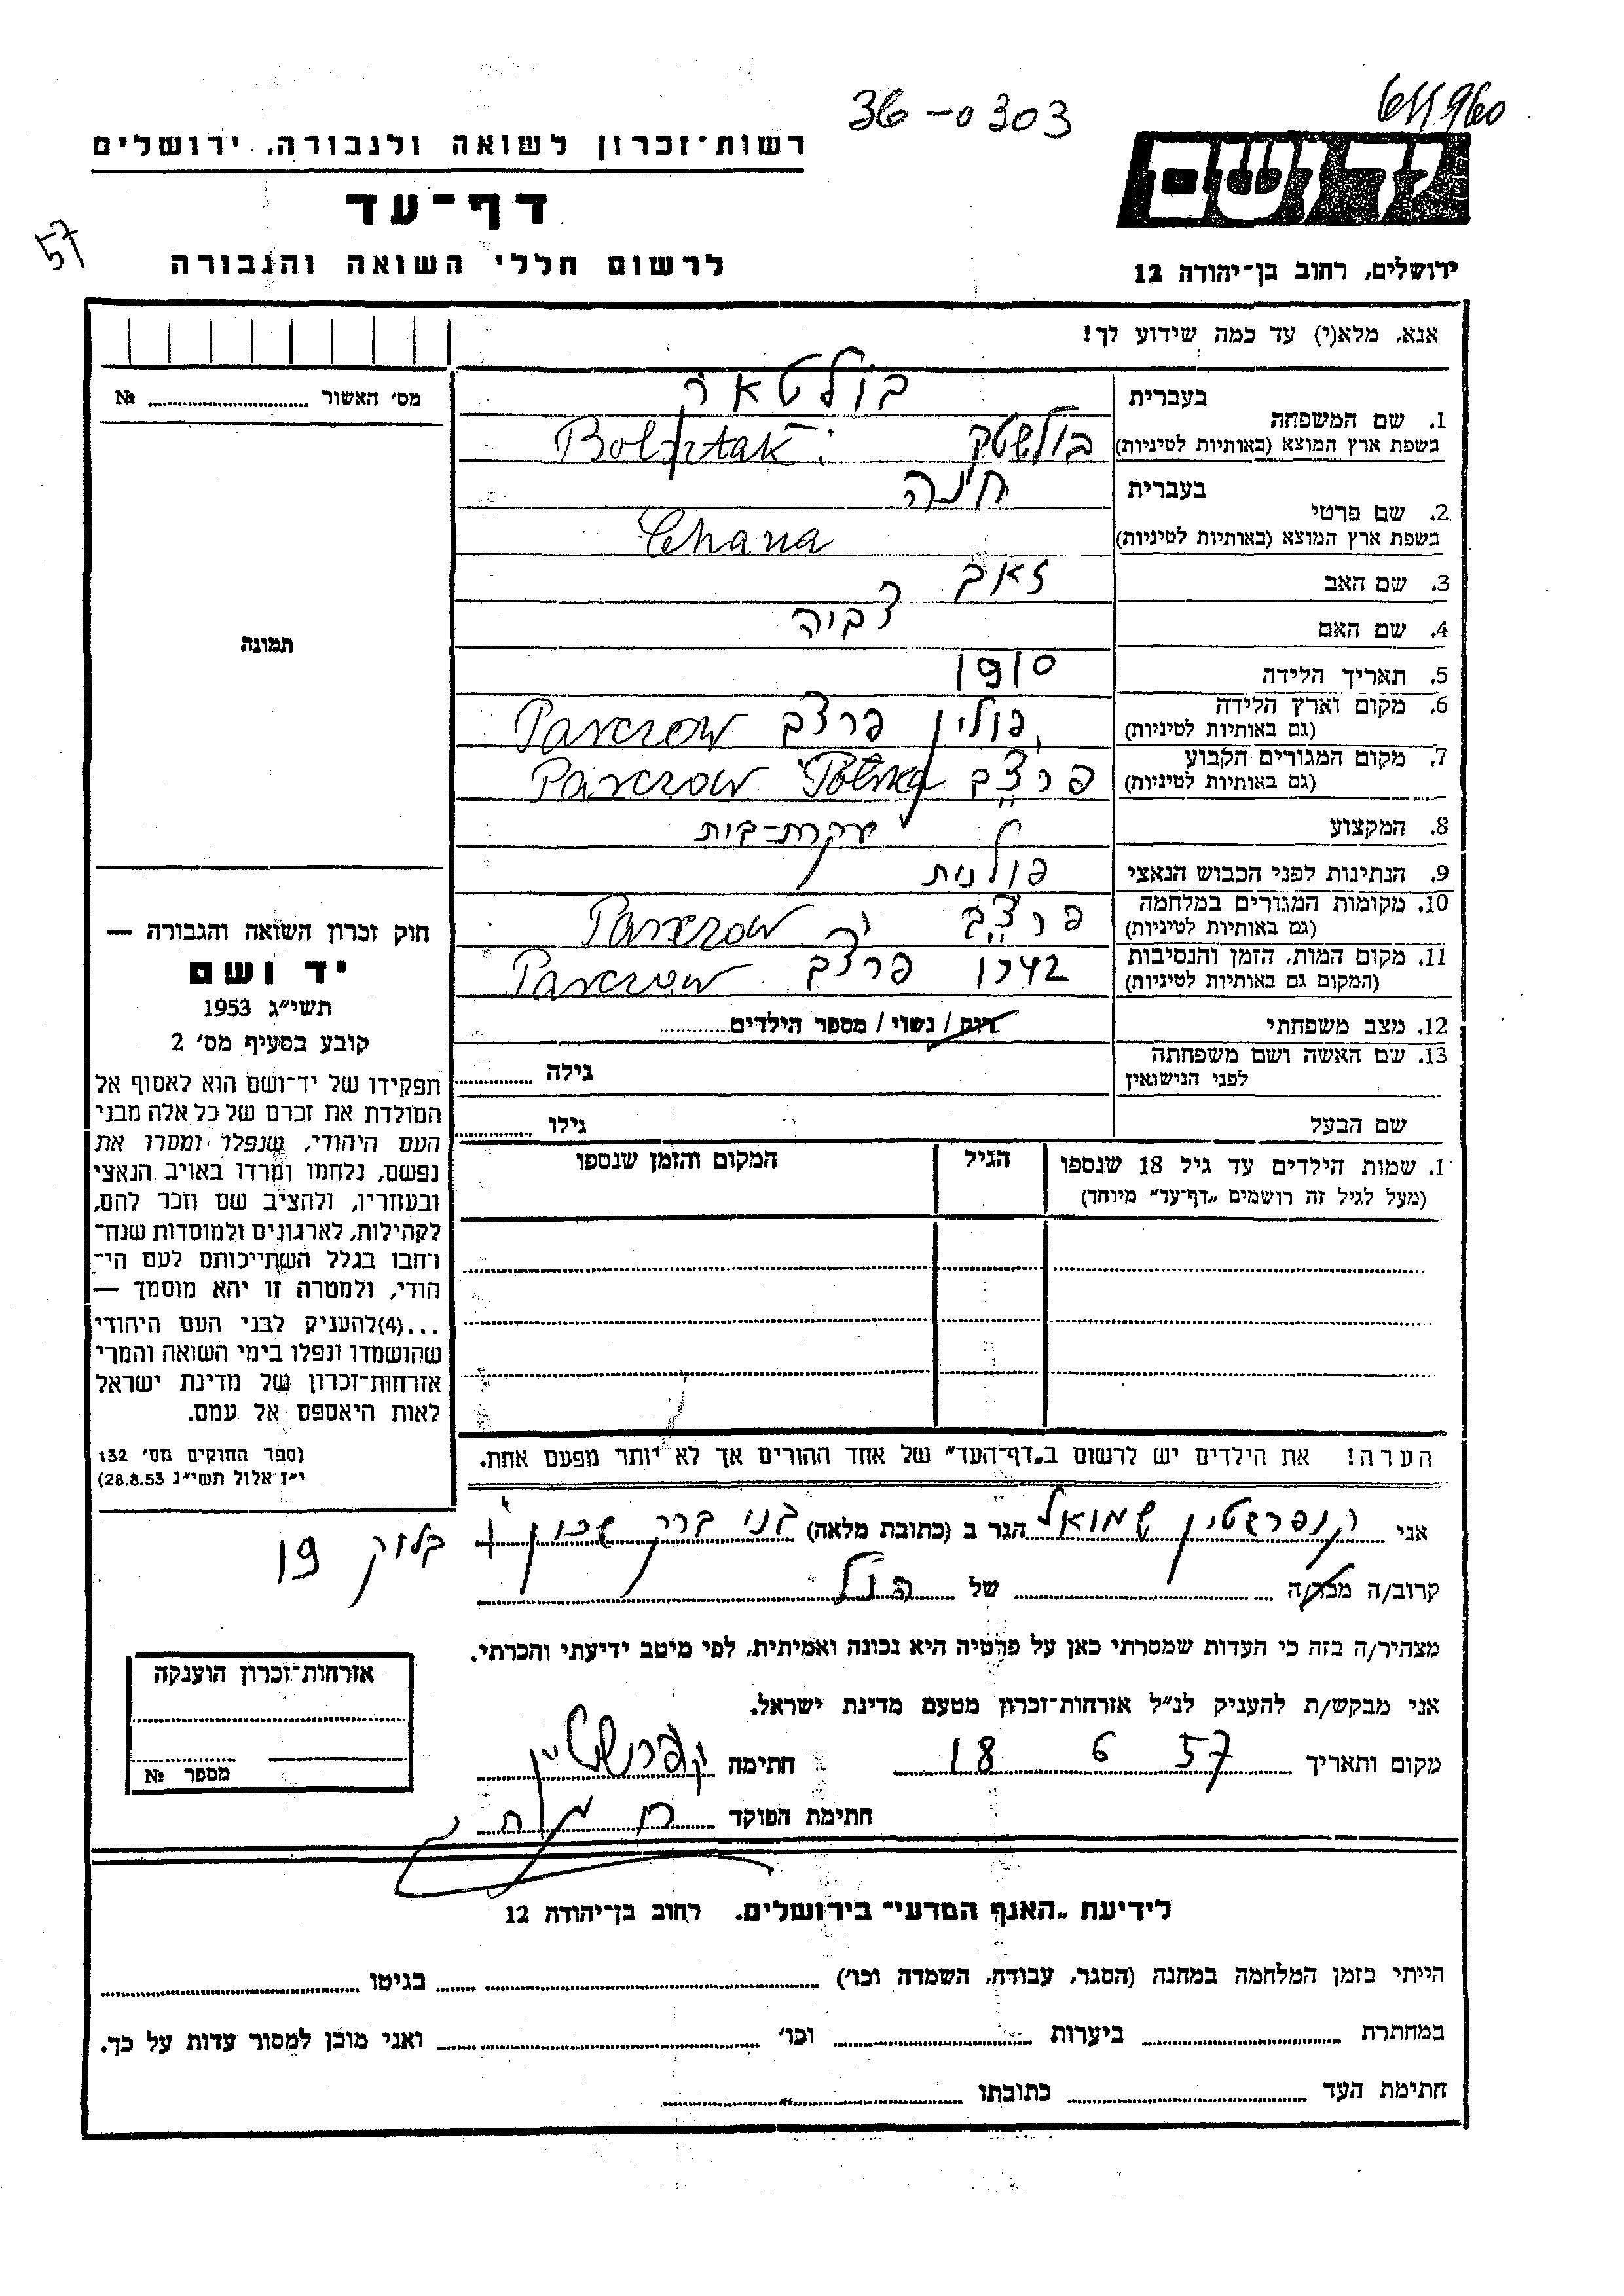 36-0303
611960
רשות־זכרון לשואה ולגבורה, ירושלים
דף־עד
57
לרשום חללי השואה והגבורה
יד ושם
ירושלים, רחוב בן־יהודה 12
אנא, מלא(י) עד כמה שידוע לך!
מס׳ האשור № 
1. שם המשפחה
בעברית
בשפת ארץ המוצא (באותיות לטיניות) בולשטק
2. שם פרטי
בעברית חנה
בשפת ארץ המוצא (באותיות לטיניות) Chana
3. שם האב זאב
4. שם האם צביה
5. תאריך הלידה 1910
6. מקום וארץ הלידה פולין פרצ'ב Parczow
(גם באותיות לטיניות)
7. מקום המגורים הקבוע פרצ'ב Parczow Polska
(גם באותיות לטיניות)
8. המקצוע עקרת-בית
9. הנתינות לפני הכבוש הנאצי פולנית
10. מקומות המגורים במלחמה פרצ'ב Parczow
(גם באותיות לטיניות)
11. מקום המות, הזמן והנסיבות 1942 פרצ'ב Parczow
(המקום גם באותיות לטיניות)
12. מצב משפחתי רווק / נשוי / מספר הילדים
13. שם האשה ושם משפחתה גילה
לפני הנישואין
שם הבעל גילו
תמונה
חוק זכרון השואה והגבורה —
יד ושם
תשי״ג 1953
קובע בסעיף מס׳ 2
תפקידו של יד־ושם הוא לאסוף אל
המולדת את זכרם של כל אלה מבני
העם היהודי, שנפלו ומסרו את
נפשם, נלחמו ומרדו באויב הנאצי
ובעוזריו, ולהציב שם וזכר להם,
לקהילות, לארגונים ולמוסדות שנח־
רבו בגלל השתייכותם לעם הי־
הודי, ולמטרה זו יהא מוסמך —
...(4)להעניק לבני העם היהודי
שהושמדו ונפלו בימי השואה והמרי
אזרחות־זכרון של מדינת ישראל
לאות היאספם אל עמם.
(ספר החוקים מס׳ 132
י״ז אלול תשי״ג 28.8.53)
1. שמות הילדים עד גיל 18 שנספו
(מעל לגיל זה רושמים „דף־עד״ מיוחד)
הגיל
המקום והזמן שנספו
הערה! את הילדים יש לרשום ב„דף־העד״ של אחד ההורים אך לא יותר מפעם אחת.
אני שמואל הגר ב (כתובת מלאה) בני ברק שכון ו בלוק 19
קרוב/ה מכר/ה של הנ״ל
מצהיר/ה בזה כי העדות שמסרתי כאן על פרטיה היא נכונה ואמיתית, לפי מיטב ידיעתי והכרתי.
אני מבקש/ת להעניק לנ״ל אזרחות־זכרון מטעם מדינת ישראל.
מקום ותאריך 18 6 57 חתימה
חתימת הפוקד
אזרחות־זכרון הוענקה
מספר №
לידיעת „האגף המדעי״ בירושלים. רחוב בן־יהודה 12
הייתי בזמן המלחמה במחנה (הסגר, עבודה, השמדה וכו׳) בגיטו
במחתרת ביערות וכו׳ ואני מוכן למסור עדות על כך.
חתימת העד כתובתו